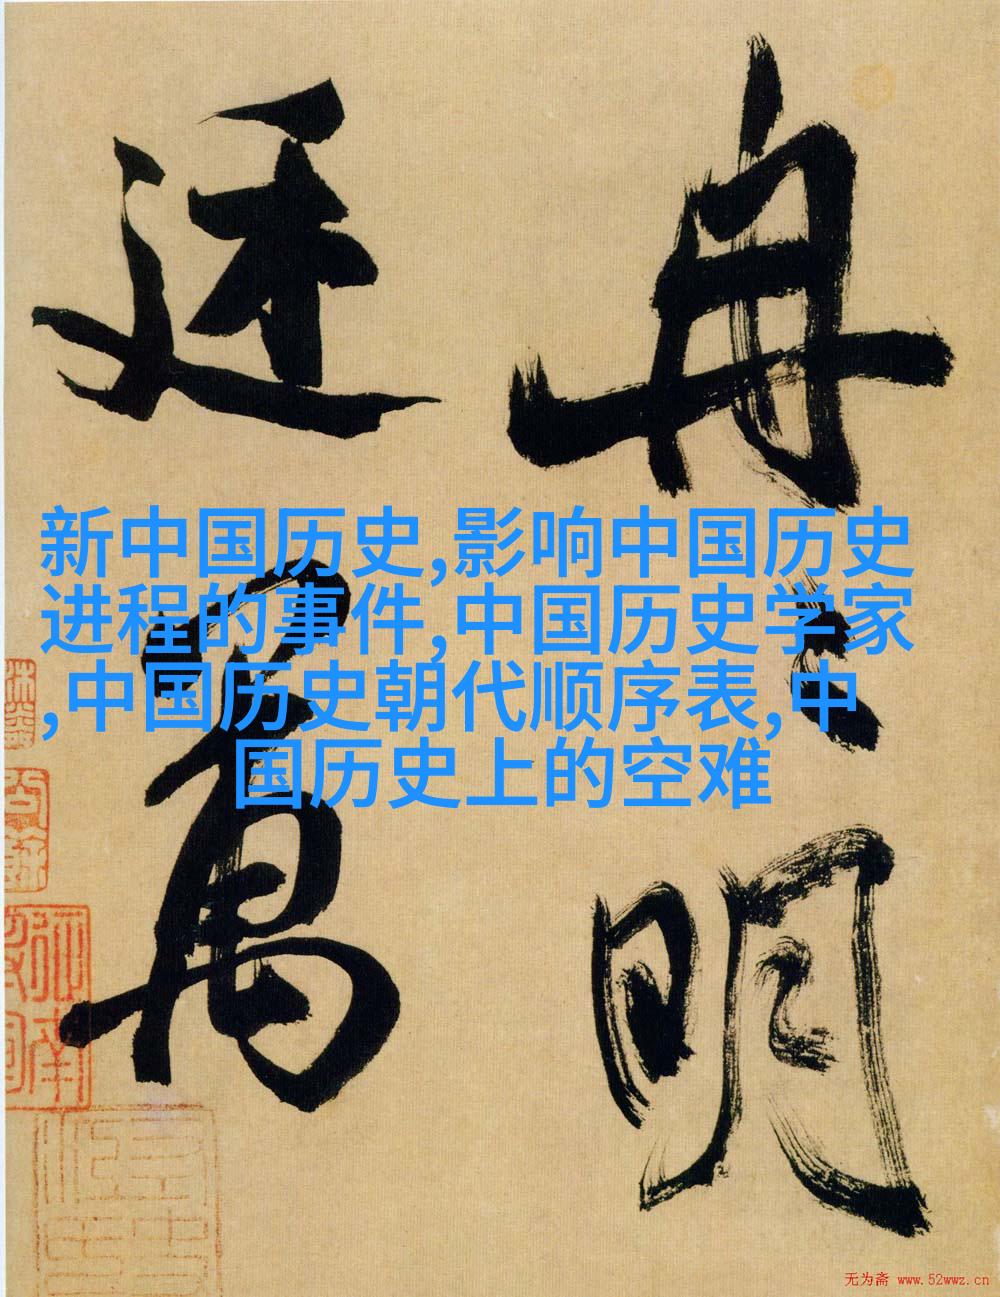 冉〻明
新中国历史,影响中国历史
进程的事件,中国历史学家
,中国历史朝代顺序表,中
国历史上的空难
无为斋 www.52wwz.cn